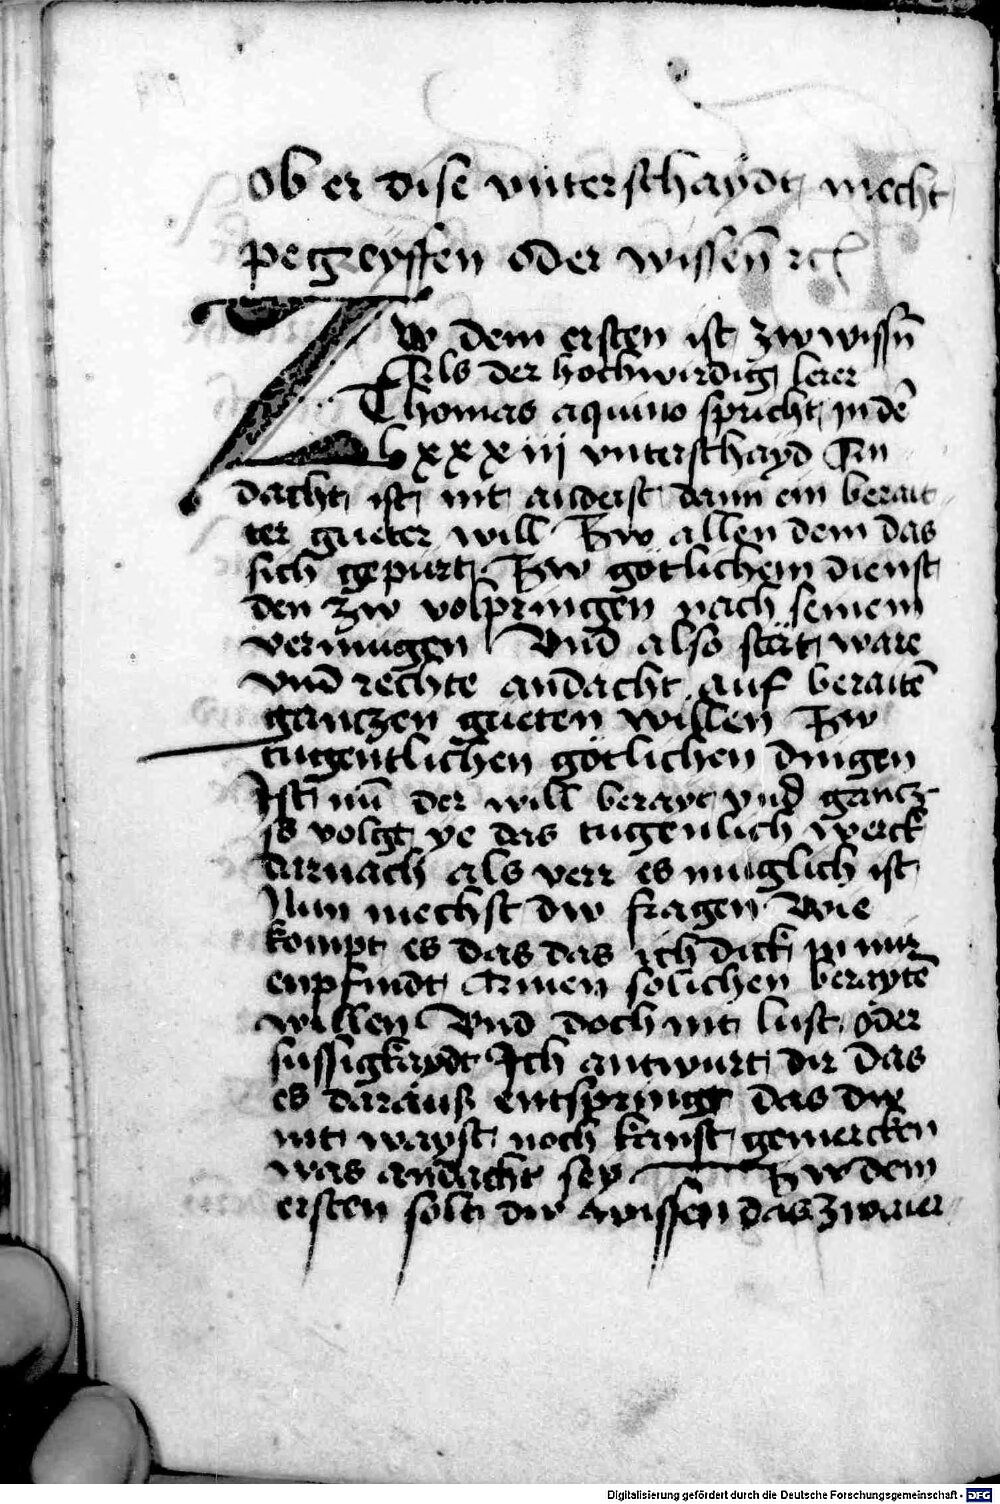 ob er dise vnterschaydt mecht
pegreyffen oder wissen̄ rc̄
Zw dem ersten ist zw wissn̄
Als der hochwirdig lerer
Thomas aquino spricht jn dē
lxxxiii vnterschayd An
dacht ist nit anderst dann ein berait
ter gueter will Zw allen dem das
sich gepurt Zw gotlichem dienst
den zw volpringen nach seinem
vermugen Vnd also stet ware
vnd̄ rechte andacht auf beraitē
ganczen gueten willen Zw
tugentlichen gotlichen dingen
Ist nū der will berayt vnd gancz
so volgt ye das tugenlich werck
darnach als verr es muglich ist
Nun mechst dw fragen Wie
kompt es das das ich dick in mir
enpfindt Ainen solichen beraytē
willen Vnd doch nit lust oder
sussigkaydt Ich antwurt dir das
es darauß entspringt das dw
nit wayst noch kanst gemercken
was andacht sey Zw dem
ersten solt dw wissen das zwaier
Digitalisierung gefördert durch die Deutsche Forschungsgemeinschaft - DFG